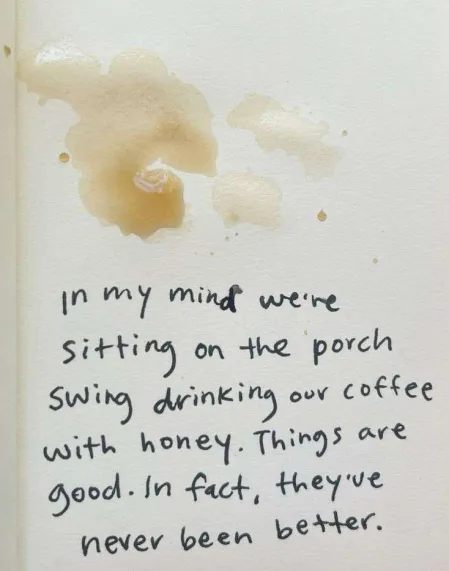 In my mind we're
sitting on the porch
swing drinking our coffee
with honey. Things are
good. In fact, they've
never been better.